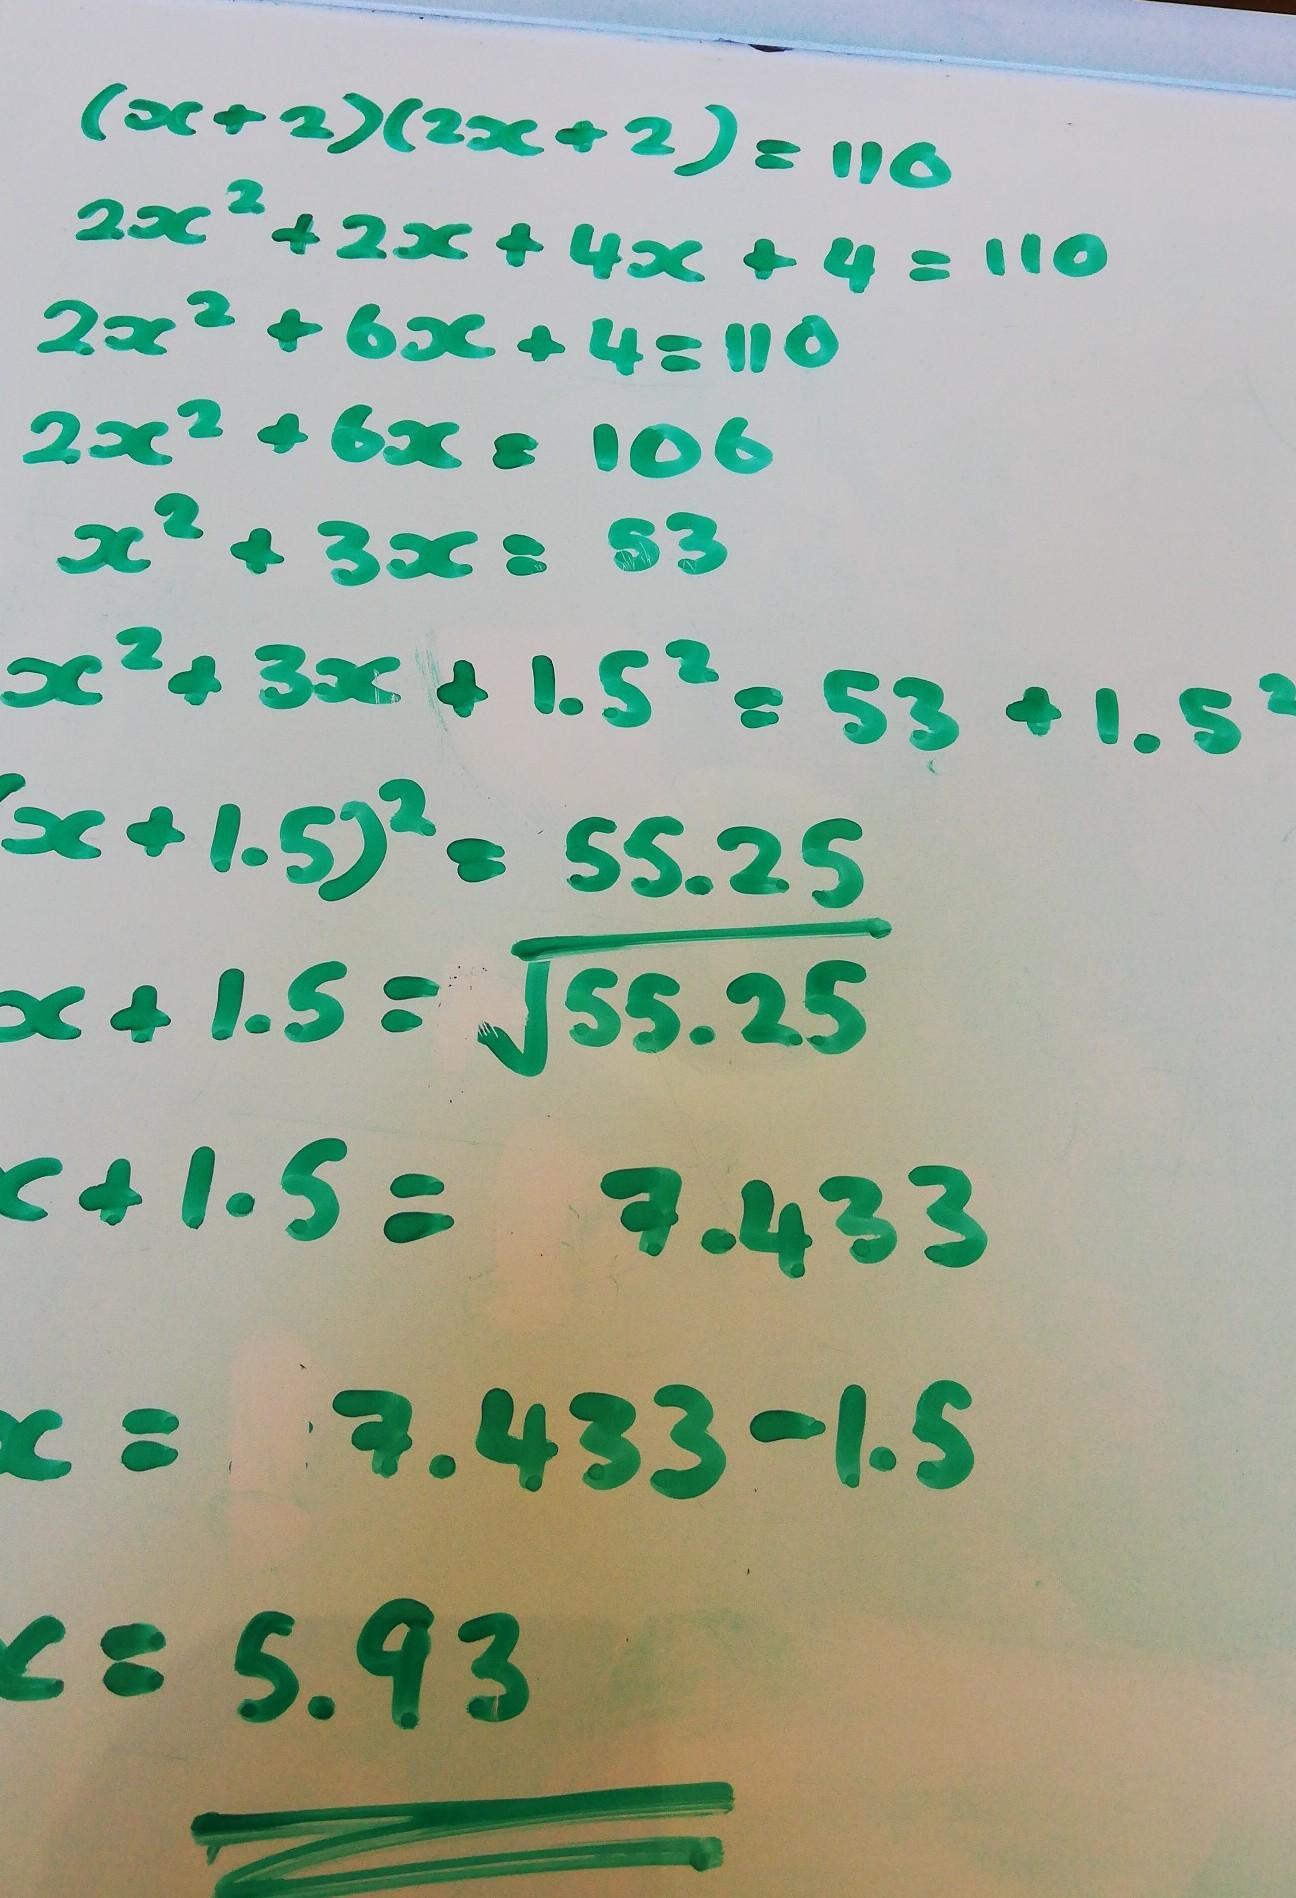 (x+2)(2x+2)=110
2x²+2x+4x+4=110
2x²+6x+4=110
2x²+6x=106
x²+3x=53
x²+3x+1.5²=53+1.5²
(x+1.5)²=55.25
x+1.5=√55.25
x+1.5=7.433
x=7.433-1.5
x=5.93